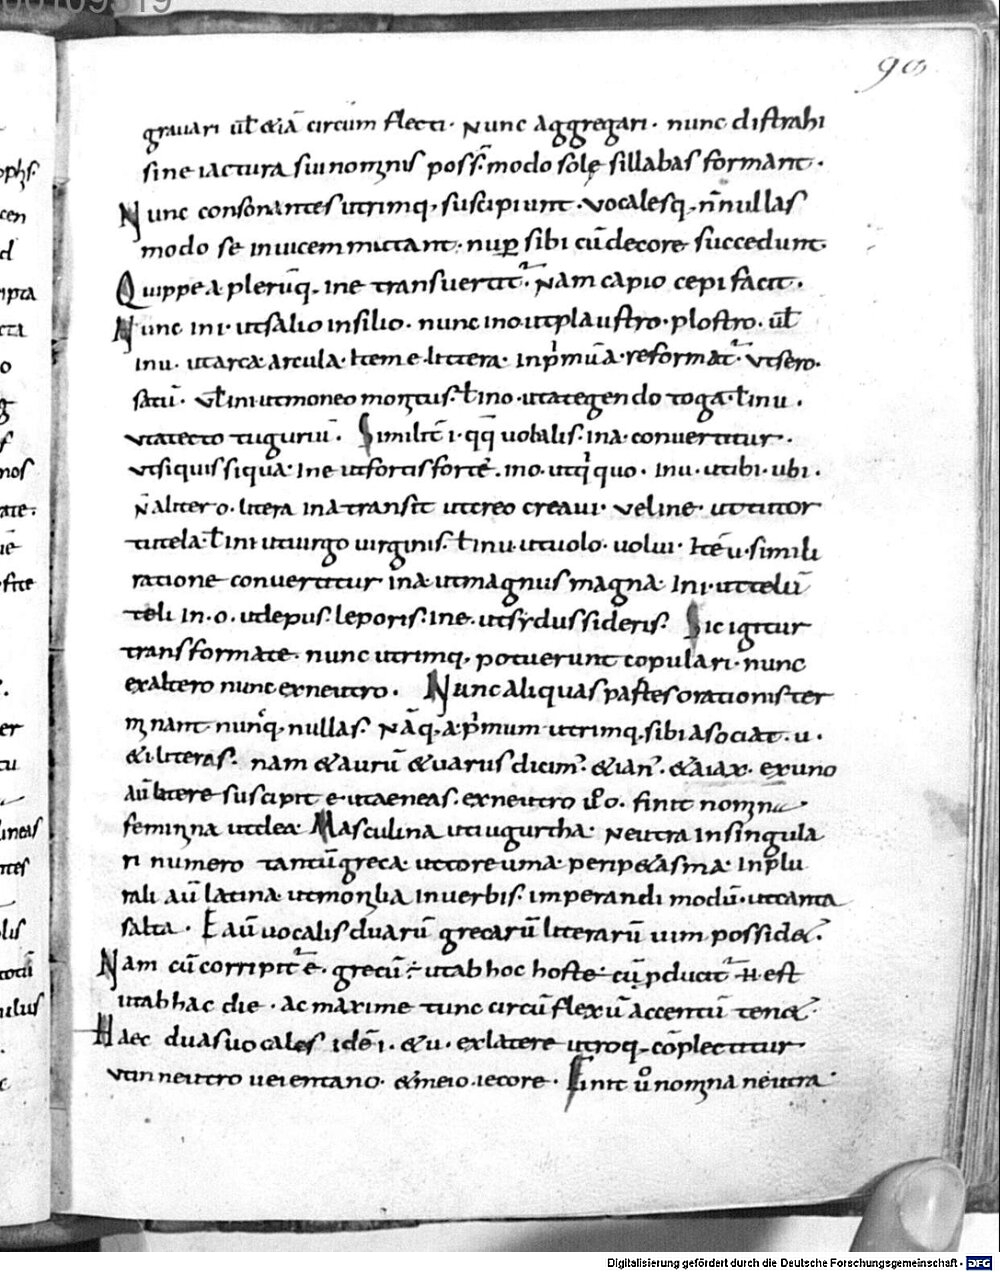 90
grauari ul̄ &iā circum flecti · Nunc aggregari · nunc distrahi
sine iactura sui nominis poss̄· modo sole sillabas formant ·
Nunc consonantes utrimq, suscipiunt · vocalesq, n̄nullas
modo se inuicem mittant · nup̱ sibi cū decore succedunt·
Quippe a plerūq, in e transuertit̄· Nam capio cepi facit ·
Nunc in i· ut salio insilio · nunc in o· ut plaustro · plostro · ul̄
in u · ut arca arcula · Item e· littera · in p̄mū a · reformat̄· ut sero·
satū · ul̄ in i· ut moneo monitus· ł in o· ut a tegendo toga· ł in u ·
ut a tecto tuguriū · Similit̄ i· q̄q̄ uobalis· in a· conuertitur ·
ut siquis siqua· in e ut fortis forte· in o· ut q̄ quo · in u· ut ibi · ubi ·
N̄ aliter o· litera in a transit ut creo creaui · vel in e· ut tutor
tutela· ł in i ut uirgo uirginis· ł in u· ut uolo· uolui · Itē u· simili
ratione conuertitur in a· ut magnus magna· In i· ut telū
teli in · o· ut lepus· leporis· in e· ut sydus sideris· Sic igitur
transformate · nunc utrimq, potuerunt copulari· nunc
ex altero nunc ex neutro · Nunc aliquas partes orationis ter
minant nunq̊, nullas· Nāq, a· p̄mum utrimq, sibi asociat · u ·
& i· literas· nam & aurū & uarus dicim̄· & ian̄ · & aiax · ex uno
aū latere suscipit e· ut aeneas· ex neutro u̅o o · finit nomina
feminina ut dea· Masculina ut iugurtha · Neutra in singula
ri numero tantū greca· ut toreuma· perip&asma· In plu
rali aū latina ut monilia in uerbis· imperandi modū· ut canta
salta · E aū uocalis duarū grecarū literarū uim possid&·
Nam cū corripit̄ e · grecū ÷ ut ab hoc hoste· cū p̱ducit̄ H est
ut ab hac die · ac maxime tunc circūflexū accentū ten&·
Haec duas uocales idē i· & u· ex latere utroq, cōplectitur
ut in neutro ueientano· & meio iecore· Finit u̅o nomina neutra·
Digitalisierung gefördert durch die Deutsche Forschungsgemeinschaft · DFG